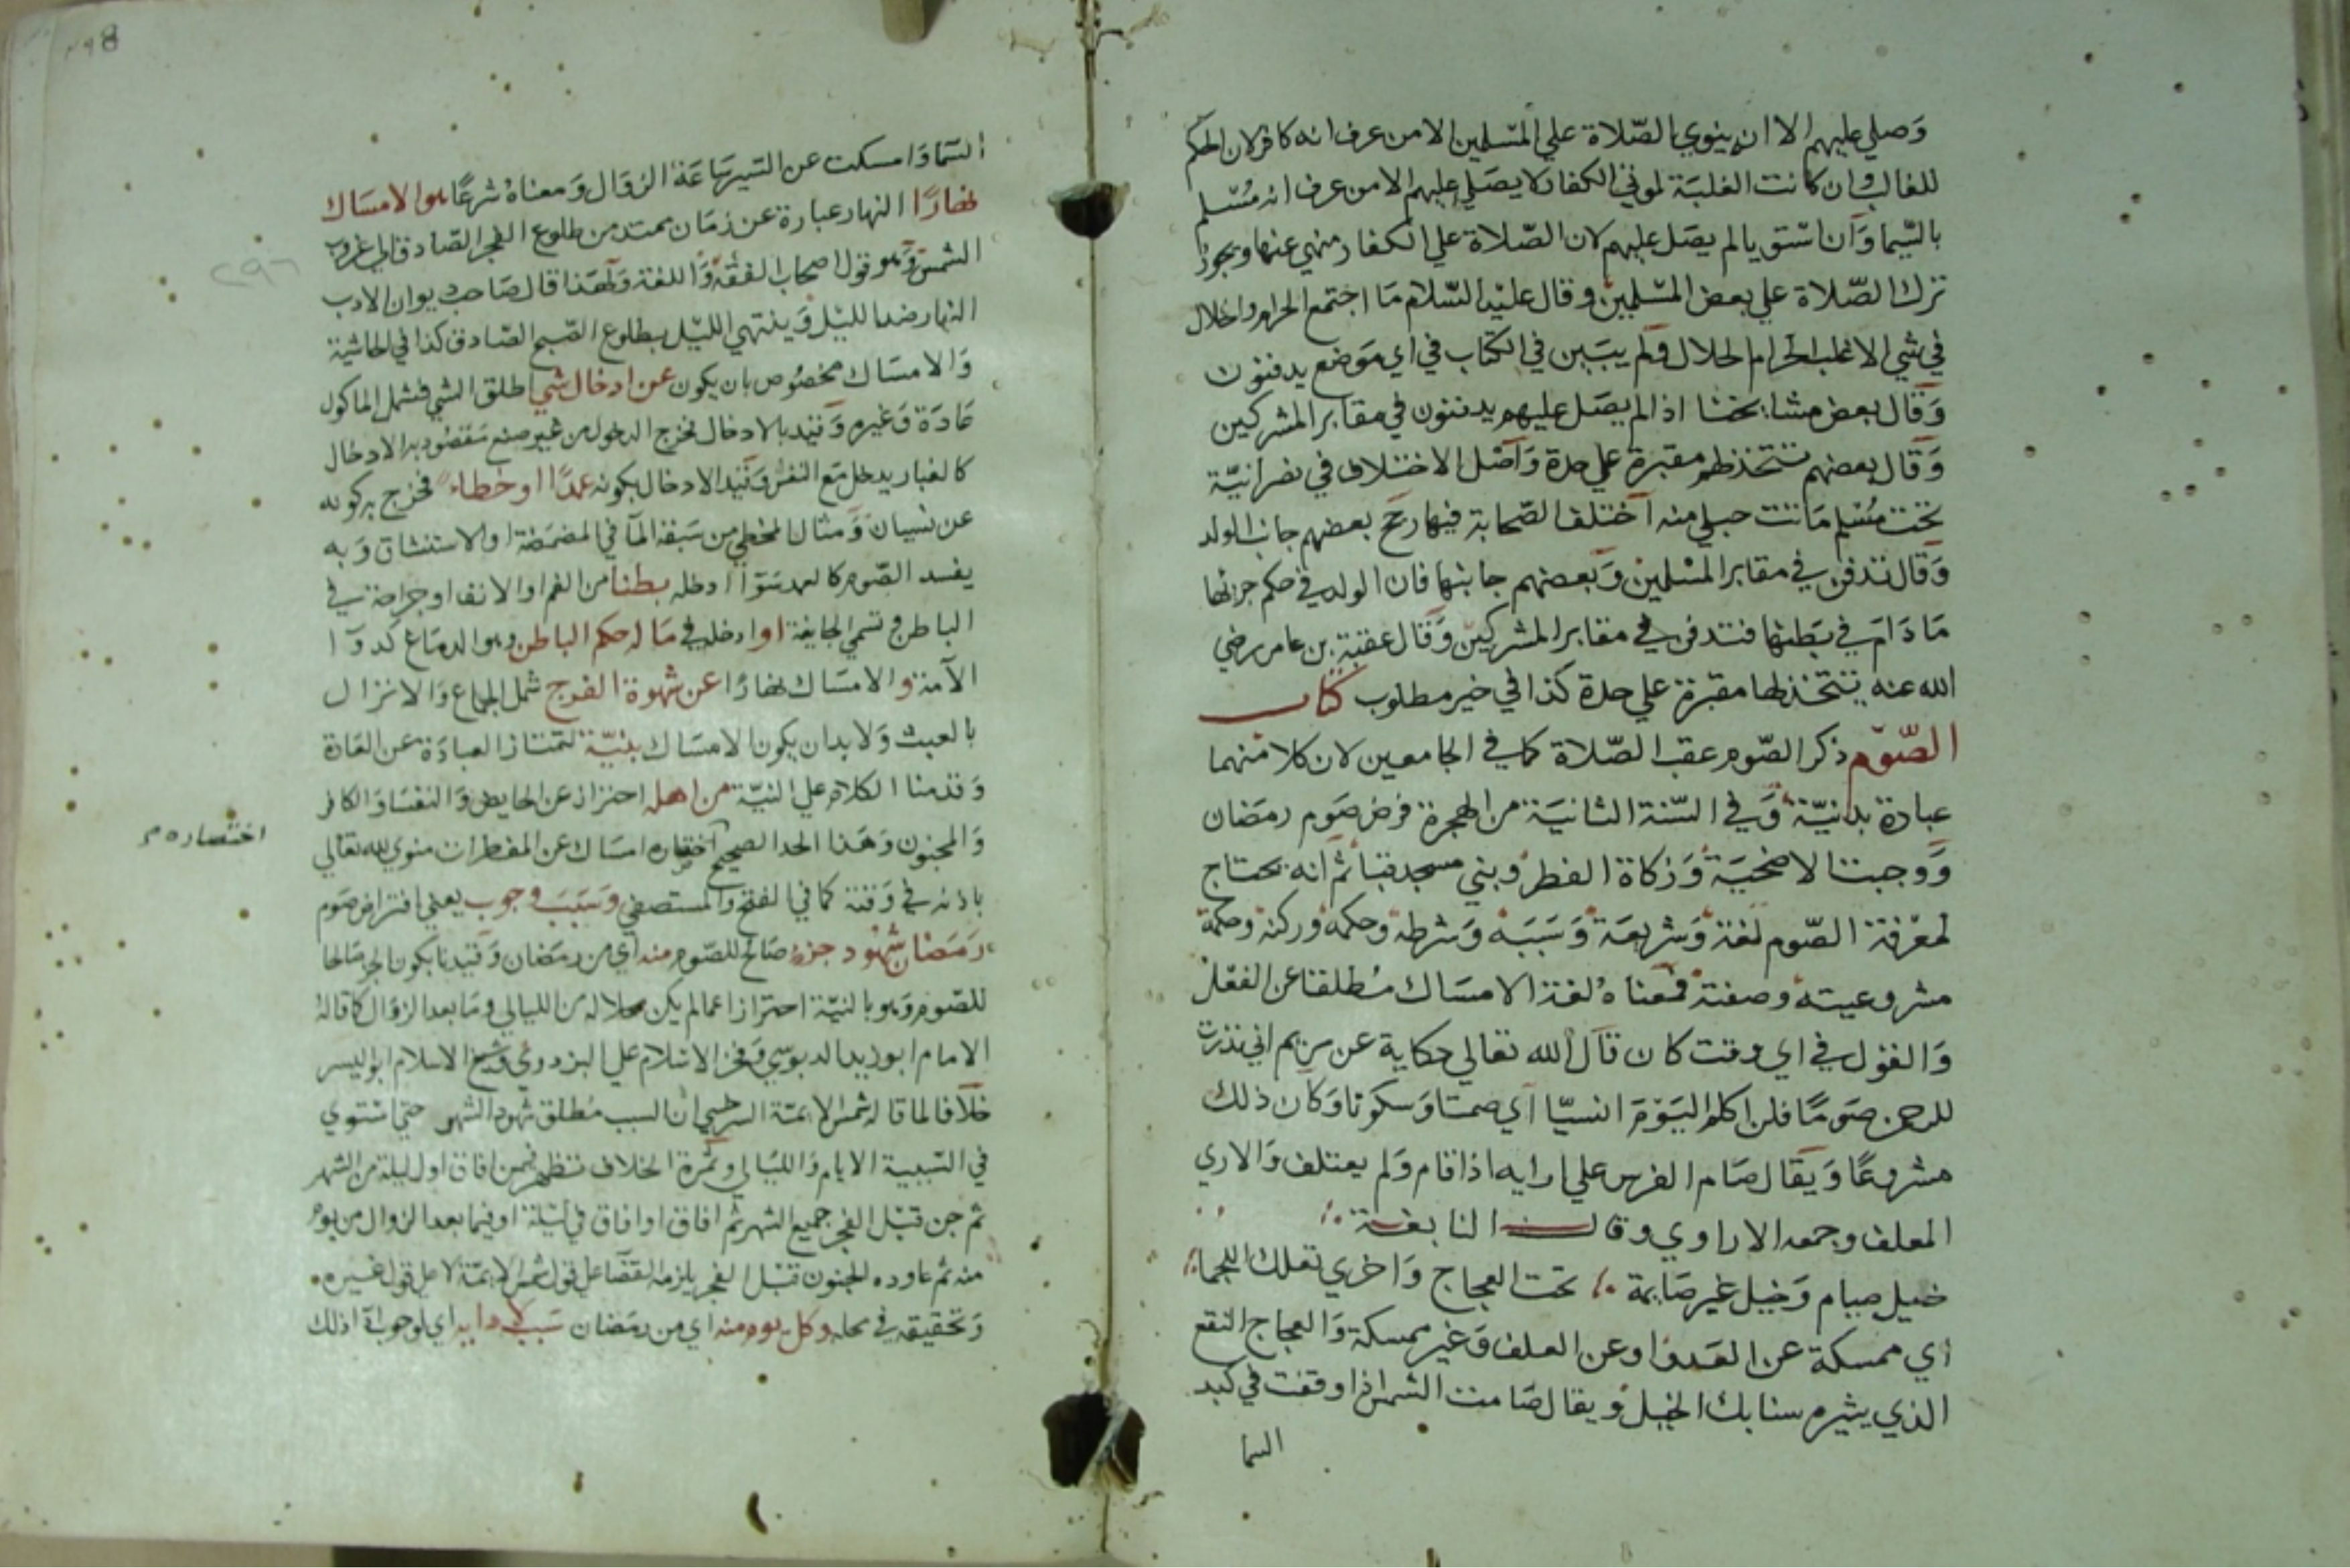 وَصلي عليهم الا ان ينوي بالصّلاة علي المسْلمين الا من عرف انه كافر لان الحكم
للغالب وان كانت الغلبَة لموتي الكفار لا يصَلي عليهم الا من عرف انه مُسْلم
بالسّيما وَان استويا لم يصَل عليهم لان الصّلاة علي الكفار منهي عنها ويجوز
ترك الصّلاة علي بعض المسْلمين وقال عليْه السّلام مَا اجتمع الحرام والحلال
في شي الا غلب الحرام الحلال ولم يبَيِن في الكتاب في اي مَوضع يدفنون
وَقال بعض مشايخنا اذا لم يصَل عليهم يدفنون في مقابر المشركين
وَقال بعضهم تتخذ لهم مقبرة علي حدة وَاصْل الاختلاف في نصْرانيّة
تحت مسْلم مَاتت حبلي منه اختلف الصّحابة فيها رجح بعضهم جانب الولد
وَقال تدفن في مقابر المسْلمين وَبعضهم جانبها فان الولد في حكم جزئها
مَا دَامَ في بَطنها فتدفن في مقابر المشركين وَقال عقبة بن عامر رضي
الله عنه يتخذ لها مقبرة علي حدة كذا في خير مطلوب كتاب
الصّوم ذكر الصّوم عقب الصّلاة كما في الجامعين لان كلا منهما
عبادة بدنيّة وَفي السّنة الثانيَة من الهجرة فرض صَوم رمَضان
وَوجبت الاضحيَة وَزكاة الفطر وبني مسجد قبا ثم انه يحتاج
لمعْرفة الصّوم لغة وَشريعَة وَسَبَبه وَشرطه وحكمه وركنه وحكمة
مشروعيته وصفته فمعناهُ لغة الامسَاك مُطلقا عن الفعْل
وَالقوْل في اي وقت كان قال الله تعالي حكاية عن مريم اني نذرت
للرحمن صَومًا فلن اكلم اليَوْمَ انسيّا اي صمتا وَسكوتا وَكان ذلك
مشروعًا وَيقال صَام الفرس علي اريه اذا قام وَلم يعتلف وَالاري
المعلف وجمعه الاواري وقال النابغة
خيل صيام وَخيل غير صَايمة تحت العجاج وَاخري تعلك اللجما
اي ممسكة عن العَدو او عن العلف وَغير ممسكة وَالعجاج النقع
الذي يثيره سنابك الخيْل وَيقال صَامت الشمس اذا وقفت في كبد
السما
السّمَا وَامسكت عن السّير سَاعَة الزوَال وَمعناهُ شرعًا هو الامسَاك
نهارًا النهار عبارة عن زمَان ممتد من طلوع الفجر الصّادق الي غروب
الشمس وَهو قول اصحاب الفقه وَاللغة وَلهَذا قال صَاحب ديوان الادب
النهار ضد الليْل وَينتهي الليْل بطلوع الصّبح الصّادق كذا في الحاشية
وَالامسَاك مخصُوص بان يكون عن ادخال شي اطلق الشي فشمل الماكول
عَادَة وَغيره وَقيد بالادخال فخرج الدخول من غير صنع مَقصُود به الادخال
كالغبار يدخل مَع النفس وَقيد الادخال بكونه عمدًا او خطاء فخرج به كونه
عن نسيان وَمثال المخطي من سَبقه المآ في المضمَضة او الاستنشاق وَبه
يفسد الصّوم كالعمد سَوَا ادخله بطنا من الفم او الانف او جراحة في
الباطن وتسمي الجايفة او ادخله في مَا له حكم الباطن وهو الدمَاغ كدوَا
الآمة والامسَاك نهارًا عن شهوة الفرج شمل الجماع وَالانزال
بالعبث وَلا بد ان يكون الامسَاك بنيّة لتمتاز العبادَة عن العَادة
وَقدمنا الكلام علي النيّة من اهله احتراز عن الحايض وَالنفسَا وَالكافر
وَالمجنون وَهَذا الحد الصحيح اختصاره امسَاك عن المفطرات منوي لله تعالي
باذنه في وَقته كما في الفتح وَالمستصفي وَسَبَب وجوب يعني افتراض صَوم
رَمَضان شهُود جزء صَالح للصّوم منه اي من رمَضان وَقيدنا بكون الجزء صَالحا
للصّوم وَهو بالنيّة احترازا عما لم يكن محلا له من الليالي وَمَا بعد الزوَال كما قاله
الامام ابو زيد الدبوسي وَفخر الاسْلام علي البزدوي وَشيخ الاسلام ابو اليسر
خلافا لما قاله شمس الايمّة السرخسي ان السبب مُطلق شهود الشهر حتي استوي
في السّببية الايام وَالليَالي وَثمرة الخلاف تظهر فيمن افاق اول ليلة من الشهر
ثم جن قبْل الفجر جميع الشهر ثم افاق او افاق في ليْلة او فيما بعد الزوال من يوم
منه ثم عاوده الجنون قبْل الفجر يلزمه القضَا علي قول شمس الايمّة لا علي قول غيره
وَتحقيقه في محله وكل يوم منه اي من رمَضان سَبب لادايه اي لوجوب ادا ذلك
اختصاره م
٢٩٦